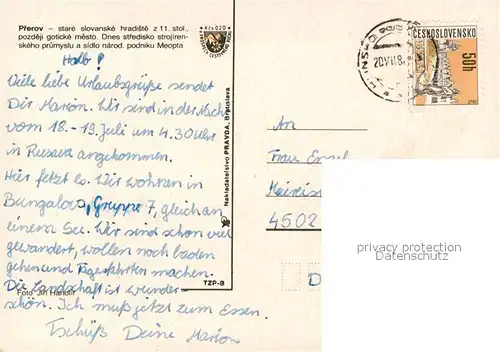 Přerov – staré slovanské hradiště z 11. stol.,
později gotické město. Dnes středisko strojíren-
ského průmyslu a sídlo národ. podniku Meopta
Viele liebe Urlaubsgrüße sendet
Dir Marion. Wir sind in der Nacht
vom 18. - 19. Juli um 4.30 Uhr
in angekommen.
Hier fetzt es. Wir wohnen in
Bungalows, Gruppe 7, gleich an
einem See. Wir sind schon viel
gewandert, wollen noch baden
gehen und Tagesfahrten machen.
Die Landschaft ist wunder-
schön. Ich muß jetzt zum Essen.
Tschüß Deine Marion
Foto Jiří
TZP-B
Nakladatelstvo PRAVDA, Bratislava
ČESKOSLOVENSKO
50h
An
Frau
4502
D
privacy protection
Datenschutz